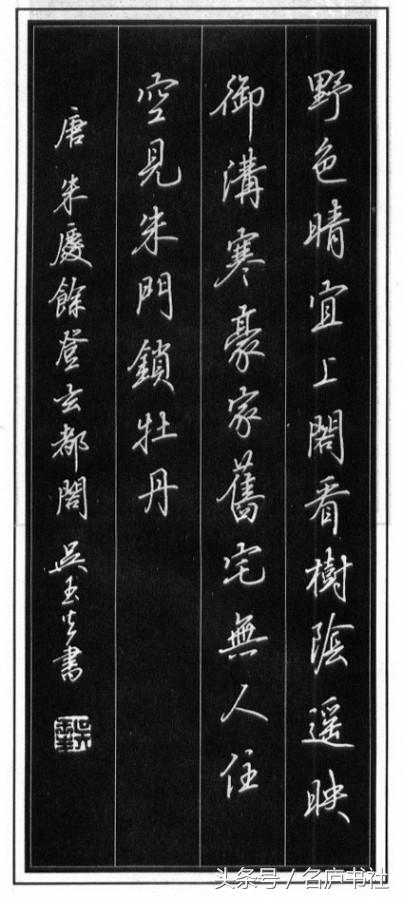 野色晴宜上閣看樹陰遥映
御溝寒豪家舊宅無人住
空見朱門鎖牡丹
唐朱慶餘登玄都閣 吳玉生書
头条号/名庐书社